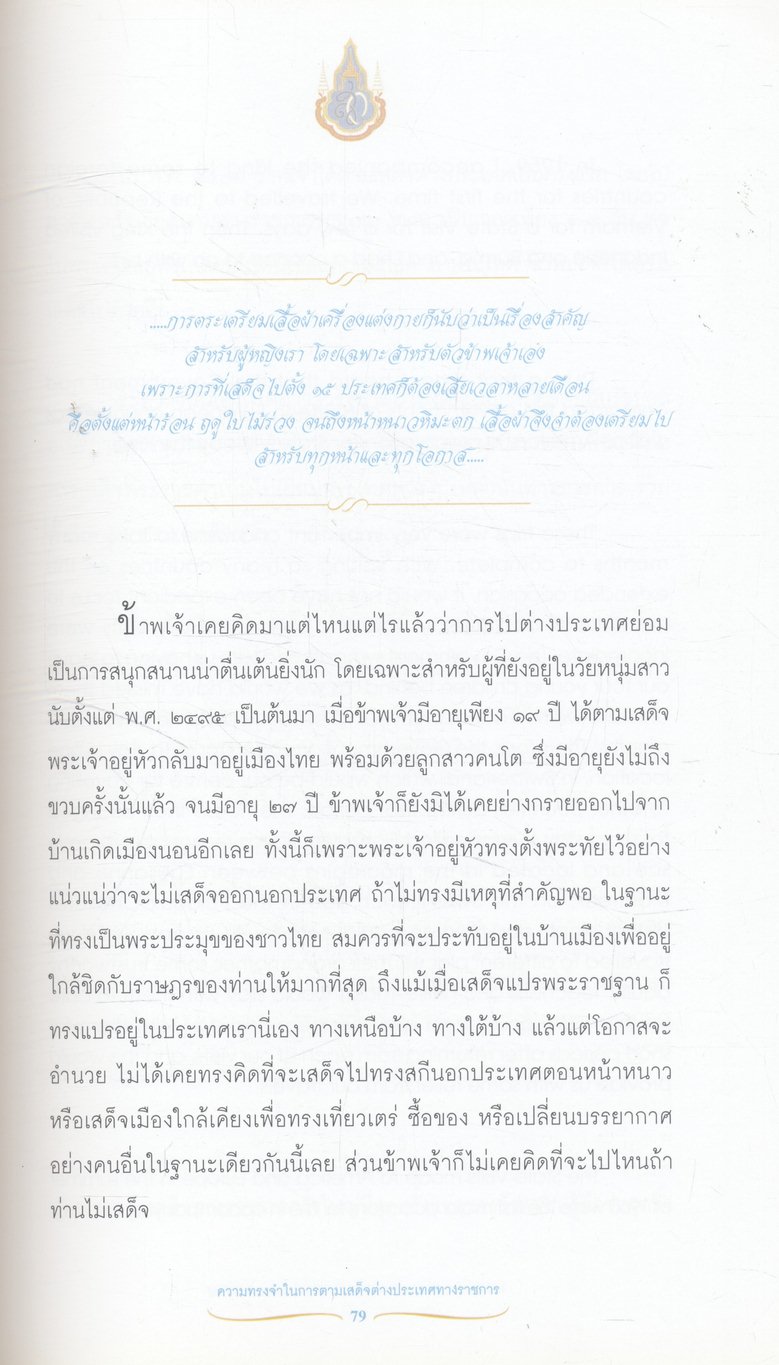 .....การตระเตรียมเสื้อผ้าเครื่องแต่งกายก็นับว่าเป็นเรื่องสำคัญ
สำหรับผู้หญิงเรา โดยเฉพาะสำหรับตัวข้าพเจ้าเอง
เพราะการที่เสด็จไปตั้ง ๑๕ ประเทศก็ต้องเสียเวลาหลายเดือน
คือตั้งแต่หน้าร้อน ฤดูใบไม้ร่วง จนถึงหน้าหนาวหิมะตก เสื้อผ้าจึงจำต้องเตรียมไป
สำหรับทุกหน้าและทุกโอกาส.....
ข้าพเจ้าเคยคิดมาแต่ไหนแต่ไรแล้วว่าการไปต่างประเทศย่อม
เป็นการสนุกสนานน่าตื่นเต้นยิ่งนัก โดยเฉพาะสำหรับผู้ที่ยังอยู่ในวัยหนุ่มสาว
นับตั้งแต่ พ.ศ. ๒๔๙๕ เป็นต้นมา เมื่อข้าพเจ้ามีอายุเพียง ๑๙ ปี ได้ตามเสด็จ
พระเจ้าอยู่หัวกลับมาอยู่เมืองไทย พร้อมด้วยลูกสาวคนโต ซึ่งมีอายุยังไม่ถึง
ขวบครั้งนั้นแล้ว จนมีอายุ ๒๗ ปี ข้าพเจ้าก็ยังมิได้เคยย่างกรายออกไปจาก
บ้านเกิดเมืองนอนอีกเลย ทั้งนี้ก็เพราะพระเจ้าอยู่หัวทรงตั้งพระทัยไว้อย่าง
แน่วแน่ว่าจะไม่เสด็จออกนอกประเทศ ถ้าไม่ทรงมีเหตุที่สำคัญพอ ในฐานะ
ที่ทรงเป็นพระประมุขของชาวไทย สมควรที่จะประทับอยู่ในบ้านเมืองเพื่ออยู่
ใกล้ชิดกับราษฎรของท่านให้มากที่สุด ถึงแม้เมื่อเสด็จแปรพระราชฐาน ก็
ทรงแปรอยู่ในประเทศเรานี่เอง ทางเหนือบ้าง ทางใต้บ้าง แล้วแต่โอกาสจะ
อำนวย ไม่ได้เคยทรงคิดที่จะเสด็จไปทรงสกีนอกประเทศตอนหน้าหนาว
หรือเสด็จเมืองใกล้เคียงเพื่อทรงเที่ยวเตร่ ซื้อของ หรือเปลี่ยนบรรยากาศ
อย่างคนอื่นในฐานะเดียวกันนี้เลย ส่วนข้าพเจ้าก็ไม่เคยคิดที่จะไปไหนถ้า
ท่านไม่เสด็จ
ความทรงจำในการตามเสด็จต่างประเทศทางราชการ
79